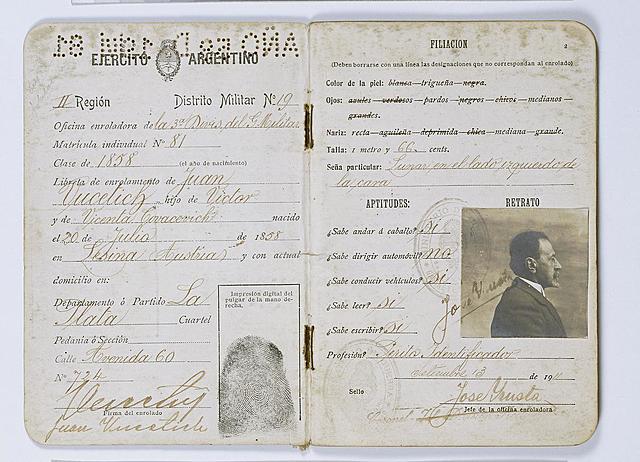 EJERCITO ARGENTINO
II Región Distrito Militar Nº 19
Oficina enroladora de la 3ª Divis. del G. Militar
Matrícula individual Nº 81
Clase de 1858 (el año de nacimiento)
Libreta de enrolamiento de Juan
Vucetich hijo de Victor
y de Vicenta Covacevich nacido
el 20 de Julio de 1858
en Lesina (Austria) y con actual
domicilio en:
Departamento ó Partido La
Plata Cuartel
Pedanía ó Sección
Calle Avenida 60
Nº 724
Firma del enrolado
Juan Vucetich
Impresión digital del
pulgar de la mano de-
recha.
FILIACION
2
(Deben borrarse con una línea las designaciones que no correspondan al enrolado)
Color de la piel: blanca - trigueña - negra.
Ojos: azules - verdosos - pardos - negros - chicos - medianos -
grandes.
Nariz: recta - aguileña - deprimida - chica - mediana - grande.
Talla: 1 metro y 66 cents.
Seña particular: Lunar en el lado izquierdo de
la cara
APTITUDES: RETRATO
¿Sabe andar á caballo? Si
¿Sabe dirigir automóvil? no
¿Sabe conducir vehículos? Si
¿Sabe leer? Si
¿Sabe escribir? Si
Profesión? Perito Identificador
Setiembre 13 de 191
Sello
Jefe de la oficina enroladora